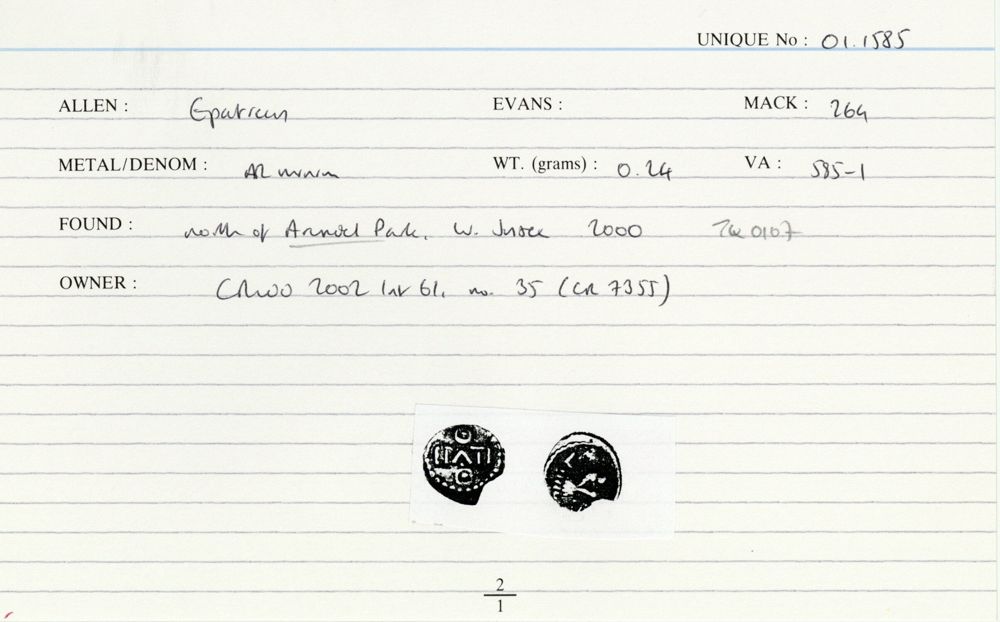 UNIQUE No : 01.1585
ALLEN : Epaticcus EVANS : MACK : 264
METAL/DENOM : AR minim WT. (grams) : 0.24 VA : 585-1
FOUND : north of Arundel Park, W. Sussex 2000 TQ 0107
OWNER : 2002 61, no. 35 (CR 7355)
2
1